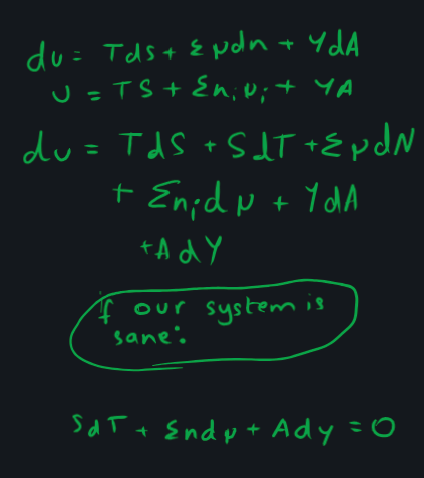 du = Tds + Σμdn + γdA
U = TS + Σnᵢμᵢ + γA
du = TdS + SdT + ΣμdN
+ Σnᵢdμ + γdA
+Adγ
if our system is
sane:
SdT + Σndμ + Adγ = 0